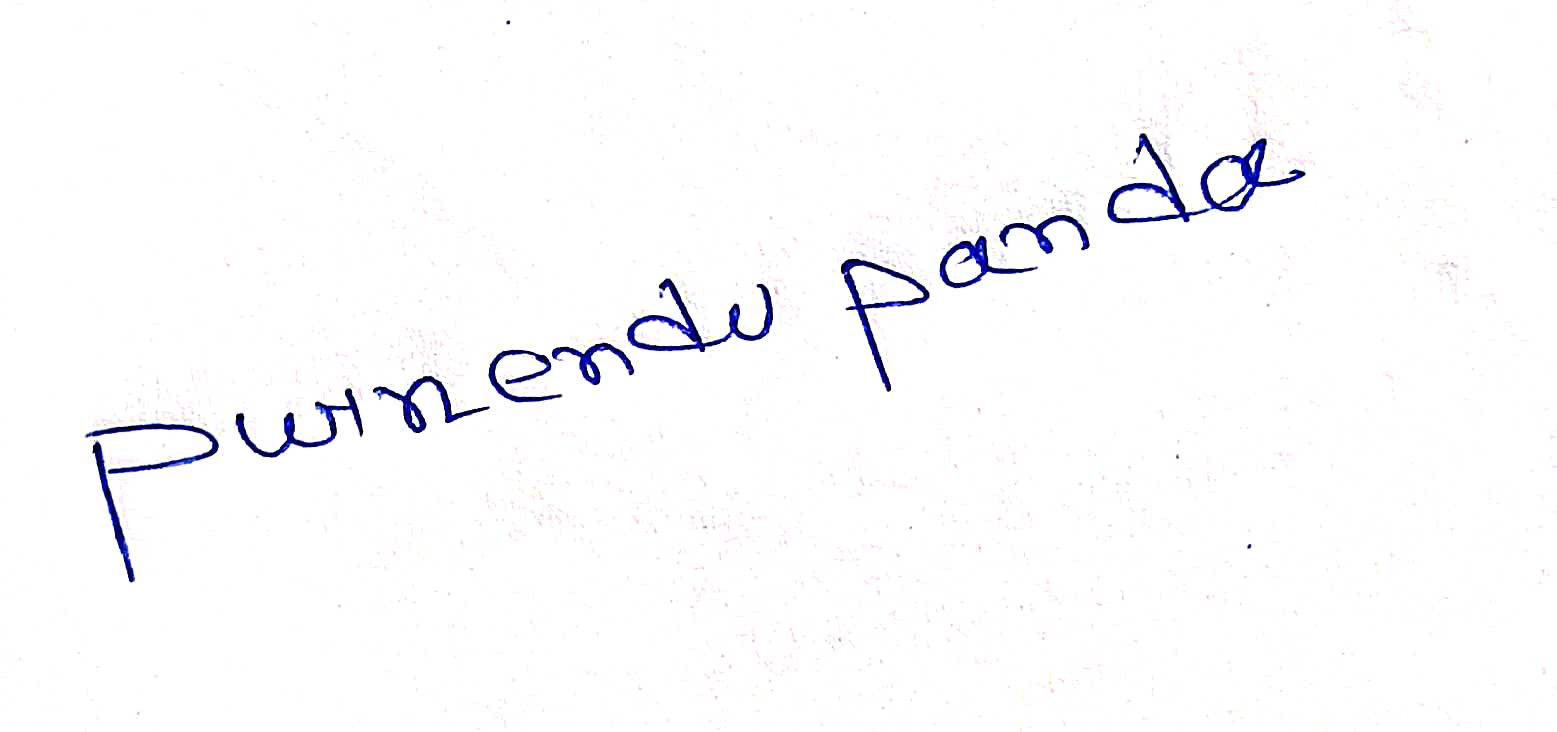 Purnendu Panda